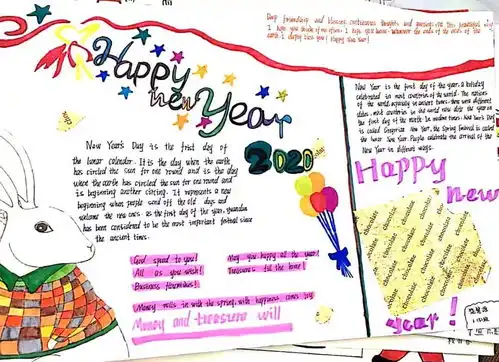 Deep friendship and blessing, continuous thoughts and greetings, on this beautiful day,
I hope you think of me often. I hope you know: Whenever the ends of the ends of the
earth I always bless you! Happy New Year!
Happy
new Year
2020
New Year's Day is the first day of
the lunar calendar. It is the day when the earth
has circled the sun for one round and is the day
when the earth has circled the sun for one round and
is beginning another circling. It represents a new
beginning when people send off the old days and
welcome the new ones. as the first day of the year, yuandan
has been considered to be the most important festival since
the ancient times.
God speed to you!
May you happy all the year!
All as you wish!
Treasures fill the home!
Business flourishes!
Money rolls in with the spring, with happiness comes
Money and treasure will
New Year is the first day of the year, a holiday
celebrated in most countries of the world. The nations
of the world, especially in ancient times, there were different
dates, most countries in the world now date the year on
the first day of the month. In modern times, New Year's Day
is called Gregorian New Year, the Spring Festival is called
the lunar New Year. People celebrate the arrival of the
New Year in different ways.
Happy
new
year!
chocolate chocolate chocolate